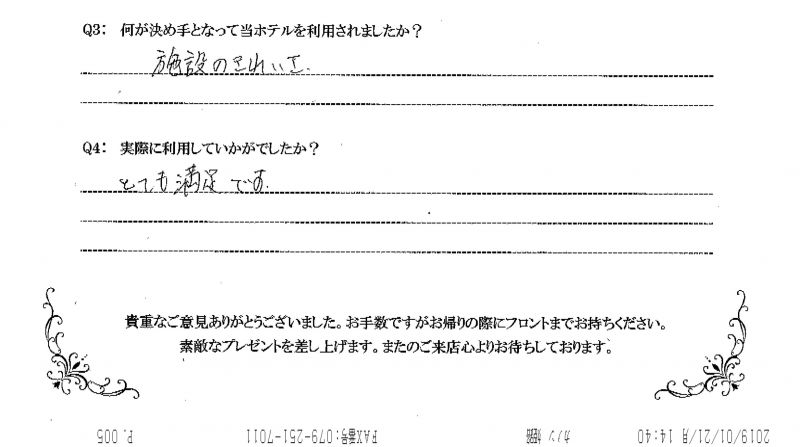 Q3: 何が決め手となって当ホテルを利用されましたか？
施設のきれいさ
Q4: 実際に利用していかがでしたか？
とても満足です。
貴重なご意見ありがとうございました。お手数ですがお帰りの際にフロントまでお持ちください。
素敵なプレゼントを差し上げます。またのご来店心よりお待ちしております。
2019/01/21/月 14:40 カノン 姫路 FAX番号:079-251-7011 P. 005